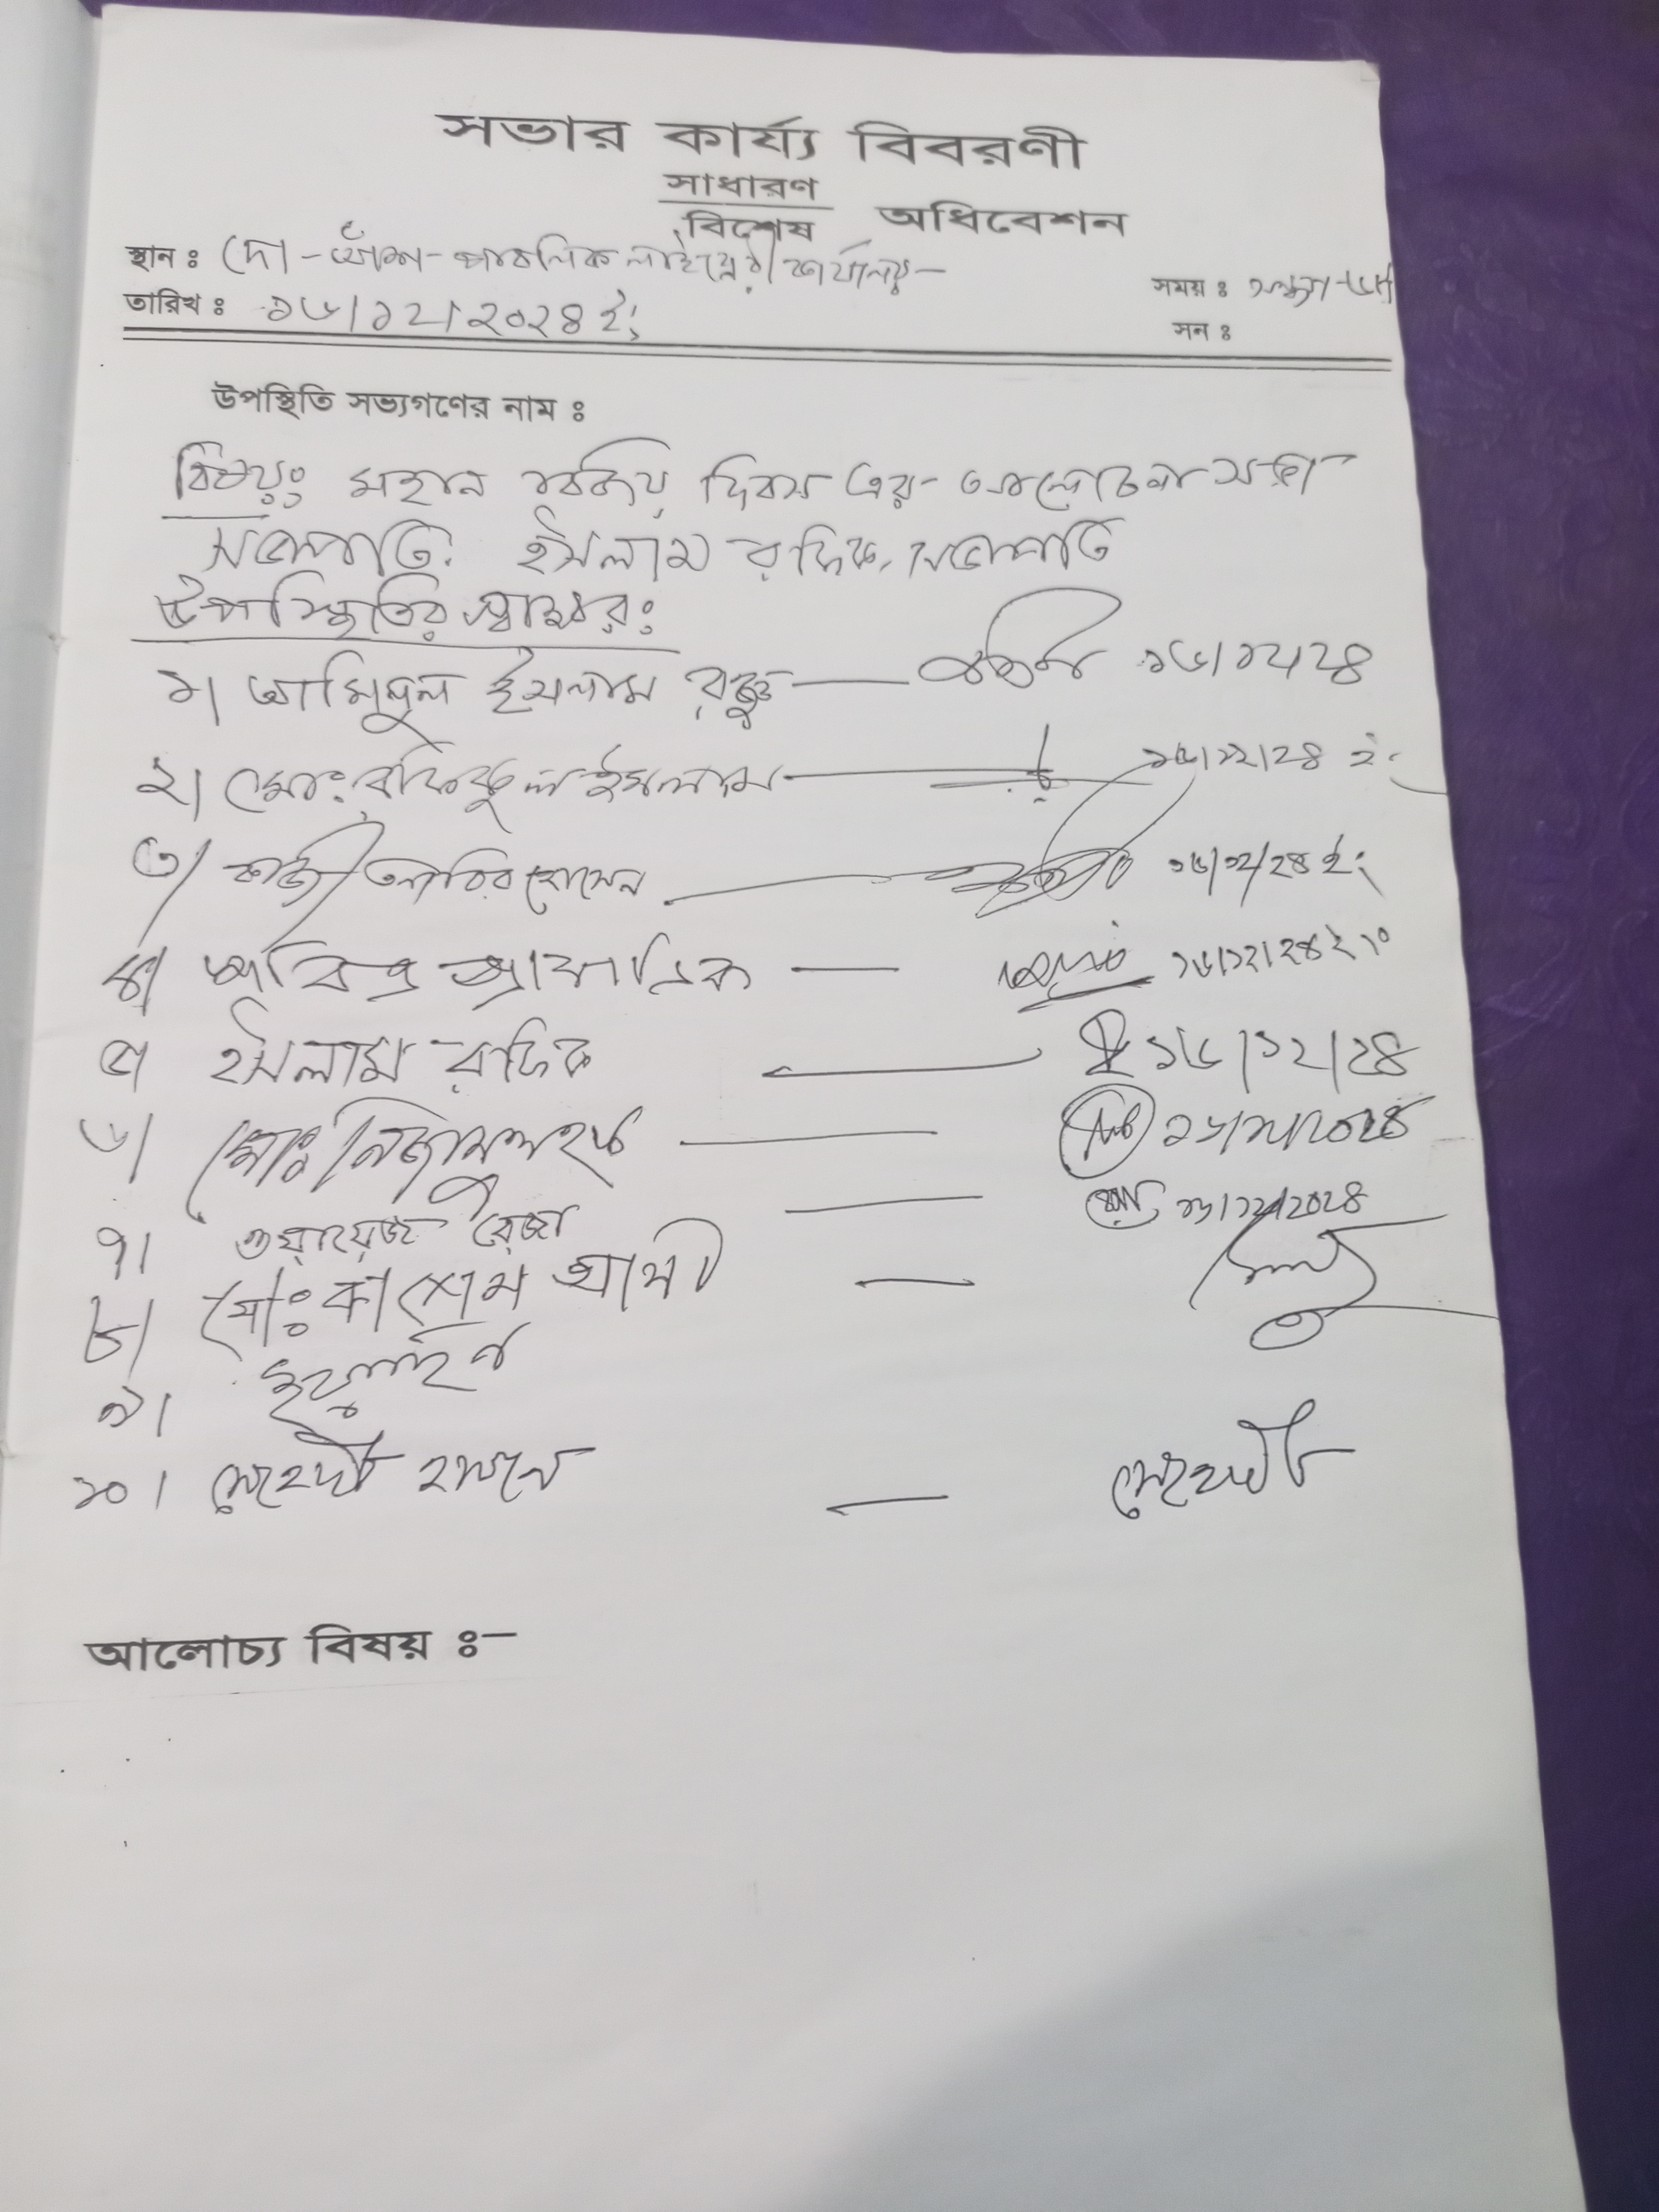 সভার কার্য্য বিবরণী
সাধারণ
বিশেষ অধিবেশন
স্থান ঃ দো-আঁশ-পাবলিক লাইব্রেরী কার্যালয়-
সময় ঃ সন্ধ্যা-৬টা
তারিখ ঃ ১৬/১২/২০২৪ ইং
সন ঃ
উপস্থিতি সভ্যগণের নাম ঃ
বিষয়ঃ মহান বিজয় দিবস এর- আলোচনা সভা
সভাপতি: ইসলাম রফিক, সভাপতি
উপস্থিতির স্বাক্ষর:
১। আমিনুল ইসলাম রঞ্জু — ১৬/১২/২৪
২। মোঃ রফিকুল ইসলাম — ১৬/১২/২৪ ইং
৩/ কাজী হোসেন — ১৬/১২/২৪ ইং
৪/ পবিত্র প্রামানিক — ১৬/১২/২৪ ইং
৫/ ইসলাম রফিক — ১৬/১২/২৪
৬/ মোঃ নিজামুল হক — ১৬/১২/২০২৪
৭। ওয়ায়েজ রেজা — ১৬/১২/২০২৪
৮/ মোঃ কাশেম আলী —
৯।
১০। মেহেদী হাসান — মেহেদী
আলোচ্য বিষয় ঃ-